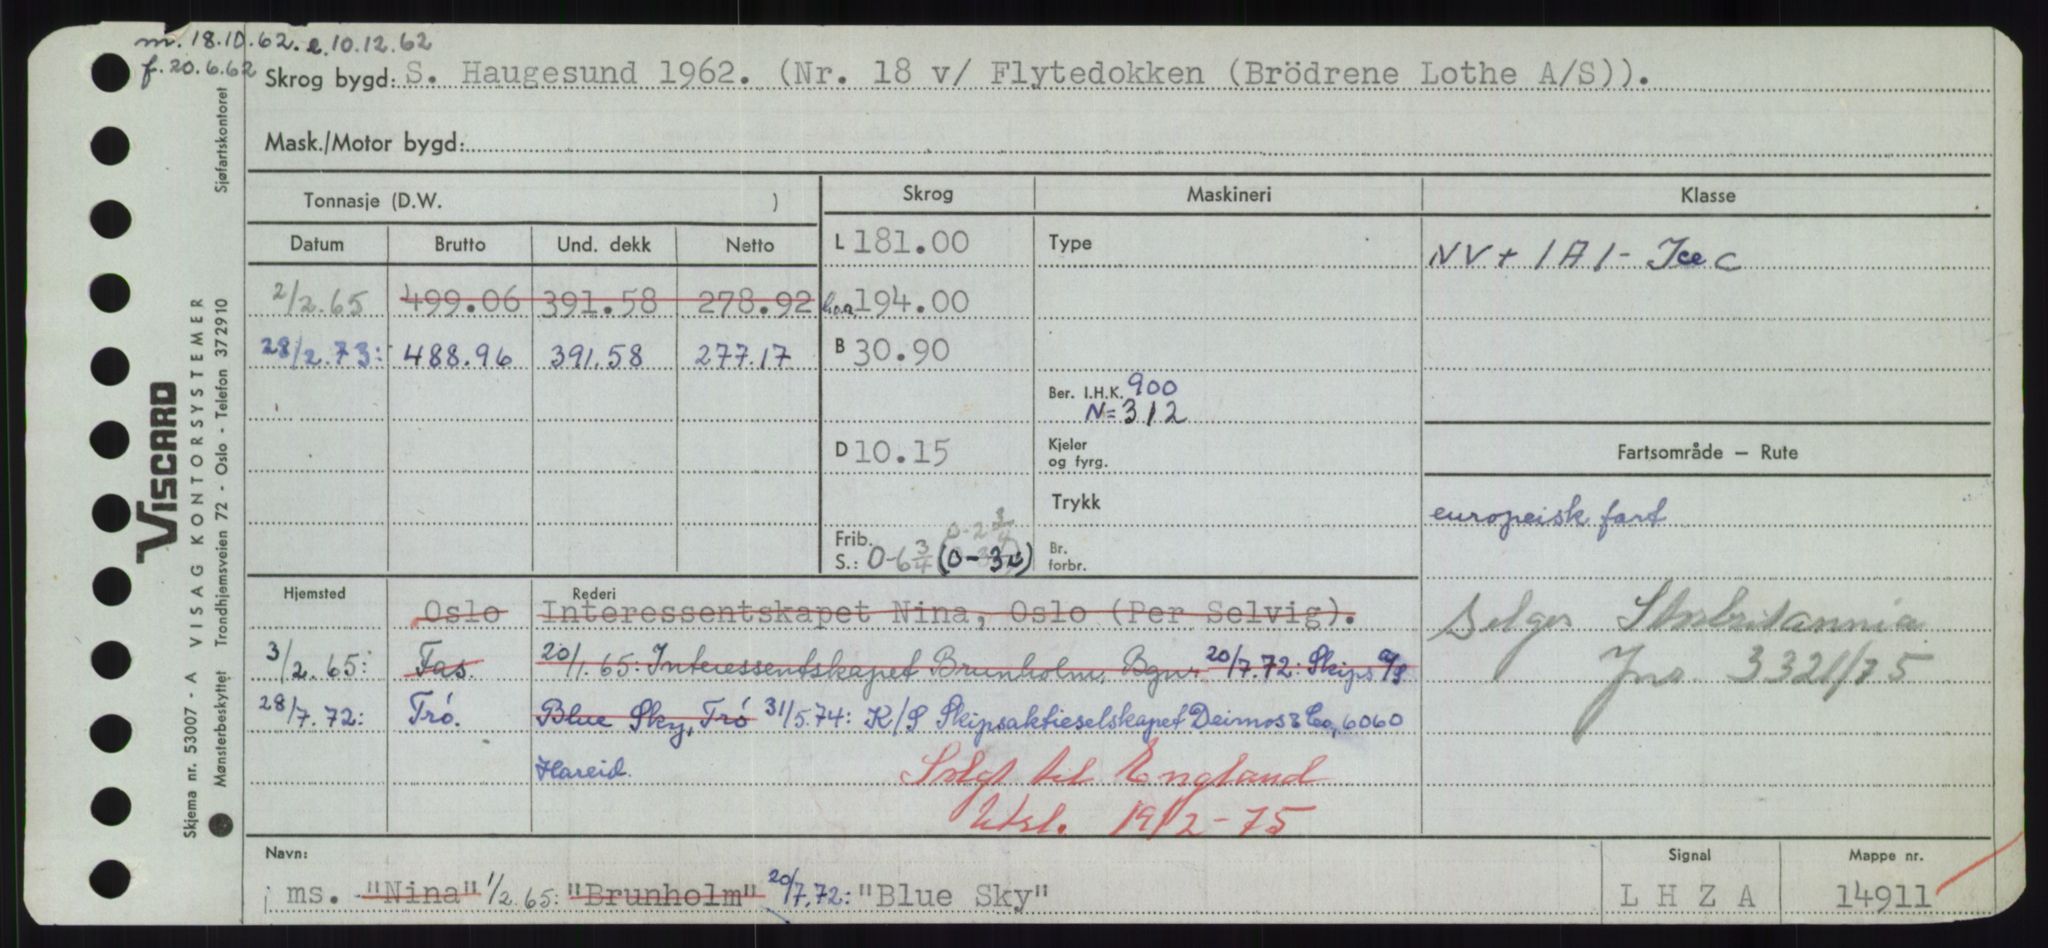 m. 18.10.62. e. 10.12.62
f. 20.6.62
Skrog bygd: S. Haugesund 1962. (Nr. 18 v/ Flytedokken (Brödrene Lothe A/S)).
Mask./Motor bygd:
Tonnasje (D.W. )
Skrog
Maskineri
Klasse
Datum Brutto Und. dekk Netto
L 181.00
Type
NV + 1A1 - Ice C
2/2.65 499.06 391.58 278.92
l.o.a. 194.00
28/2.73: 488.96 391.58 277.17
B 30.90
Ber. I.H.K. 900
N = 312
D 10.15
Kjeler
og fyrg.
Fartsområde — Rute
Trykk
europeisk fart
0-2 3/4
Frib.
S.: 0-6 3/4 (0-3)
Br.
forbr.
Hjemsted
Rederi
Oslo Interessentskapet Nina, Oslo (Per Selvig).
Selges Storbritannia
3/2.65: Fas. 20/1.65: Interessentskapet Brunholm, Bgn. 20/7.72: Skips A/S
Jnr. 3321/75
28/7.72: Tró. Blue Sky, Tró 31/5.74: K/S Skipsaktieselskapet Deimos & Co, 6060
Hareid.
Solgt til England
Utsl. 19/2-75
Navn:
Signal
Mappe nr.
ms. "Nina" 1/2.65: "Brunholm" 20/7.72: "Blue Sky"
L H Z A
14911
Skjema nr. 53007 - A VISAG KONTORSYSTEMER
VISCARD
Mønsterbeskyttet Trondhjemsveien 72 - Oslo - Telefon 372910 Sjøfartskontoret